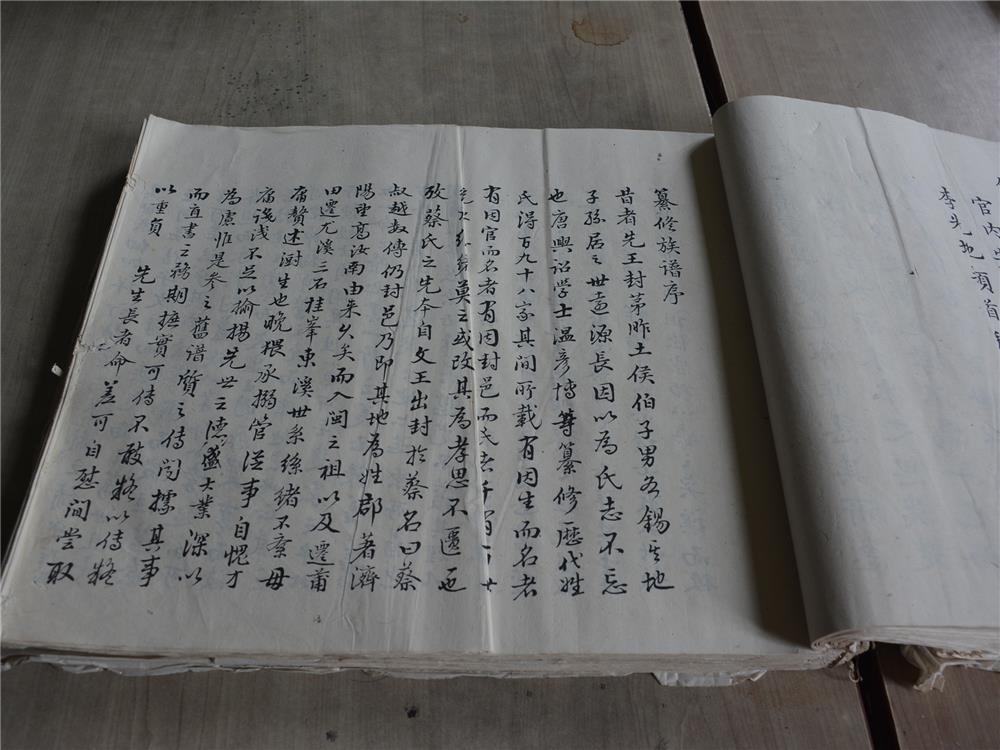 纂修族谱序
昔者先王封茅胙土侯伯子男各錫其地
子孫居之世遠源長因以為氏志不忘
也唐興詔学士溫彥博等纂修歷代姓
氏得百九十八家其間所載有因生而名者
有因官而名者有因封邑而氏者
莫之或改其為孝思不匱也
攷蔡氏之先本自文王出封於蔡名曰蔡
叔越数傳仍封邑乃即其地為姓郡著濟
陽望髙汝南由来久矣而入闽之祖以及遷莆
田遷尤溪三石桂峯東溪世系絲緒不紊毋
庸贅述澍生也晚猥承搦管従事自愧才
庸識浅不足以揄揚先世之德盛大業深以
為慮惟是参之舊谱質之傳闻據其事
而直書之務期摭實可傳不敢
先生長者命差可自慰间嘗取
以重負
官内
李先地頁首